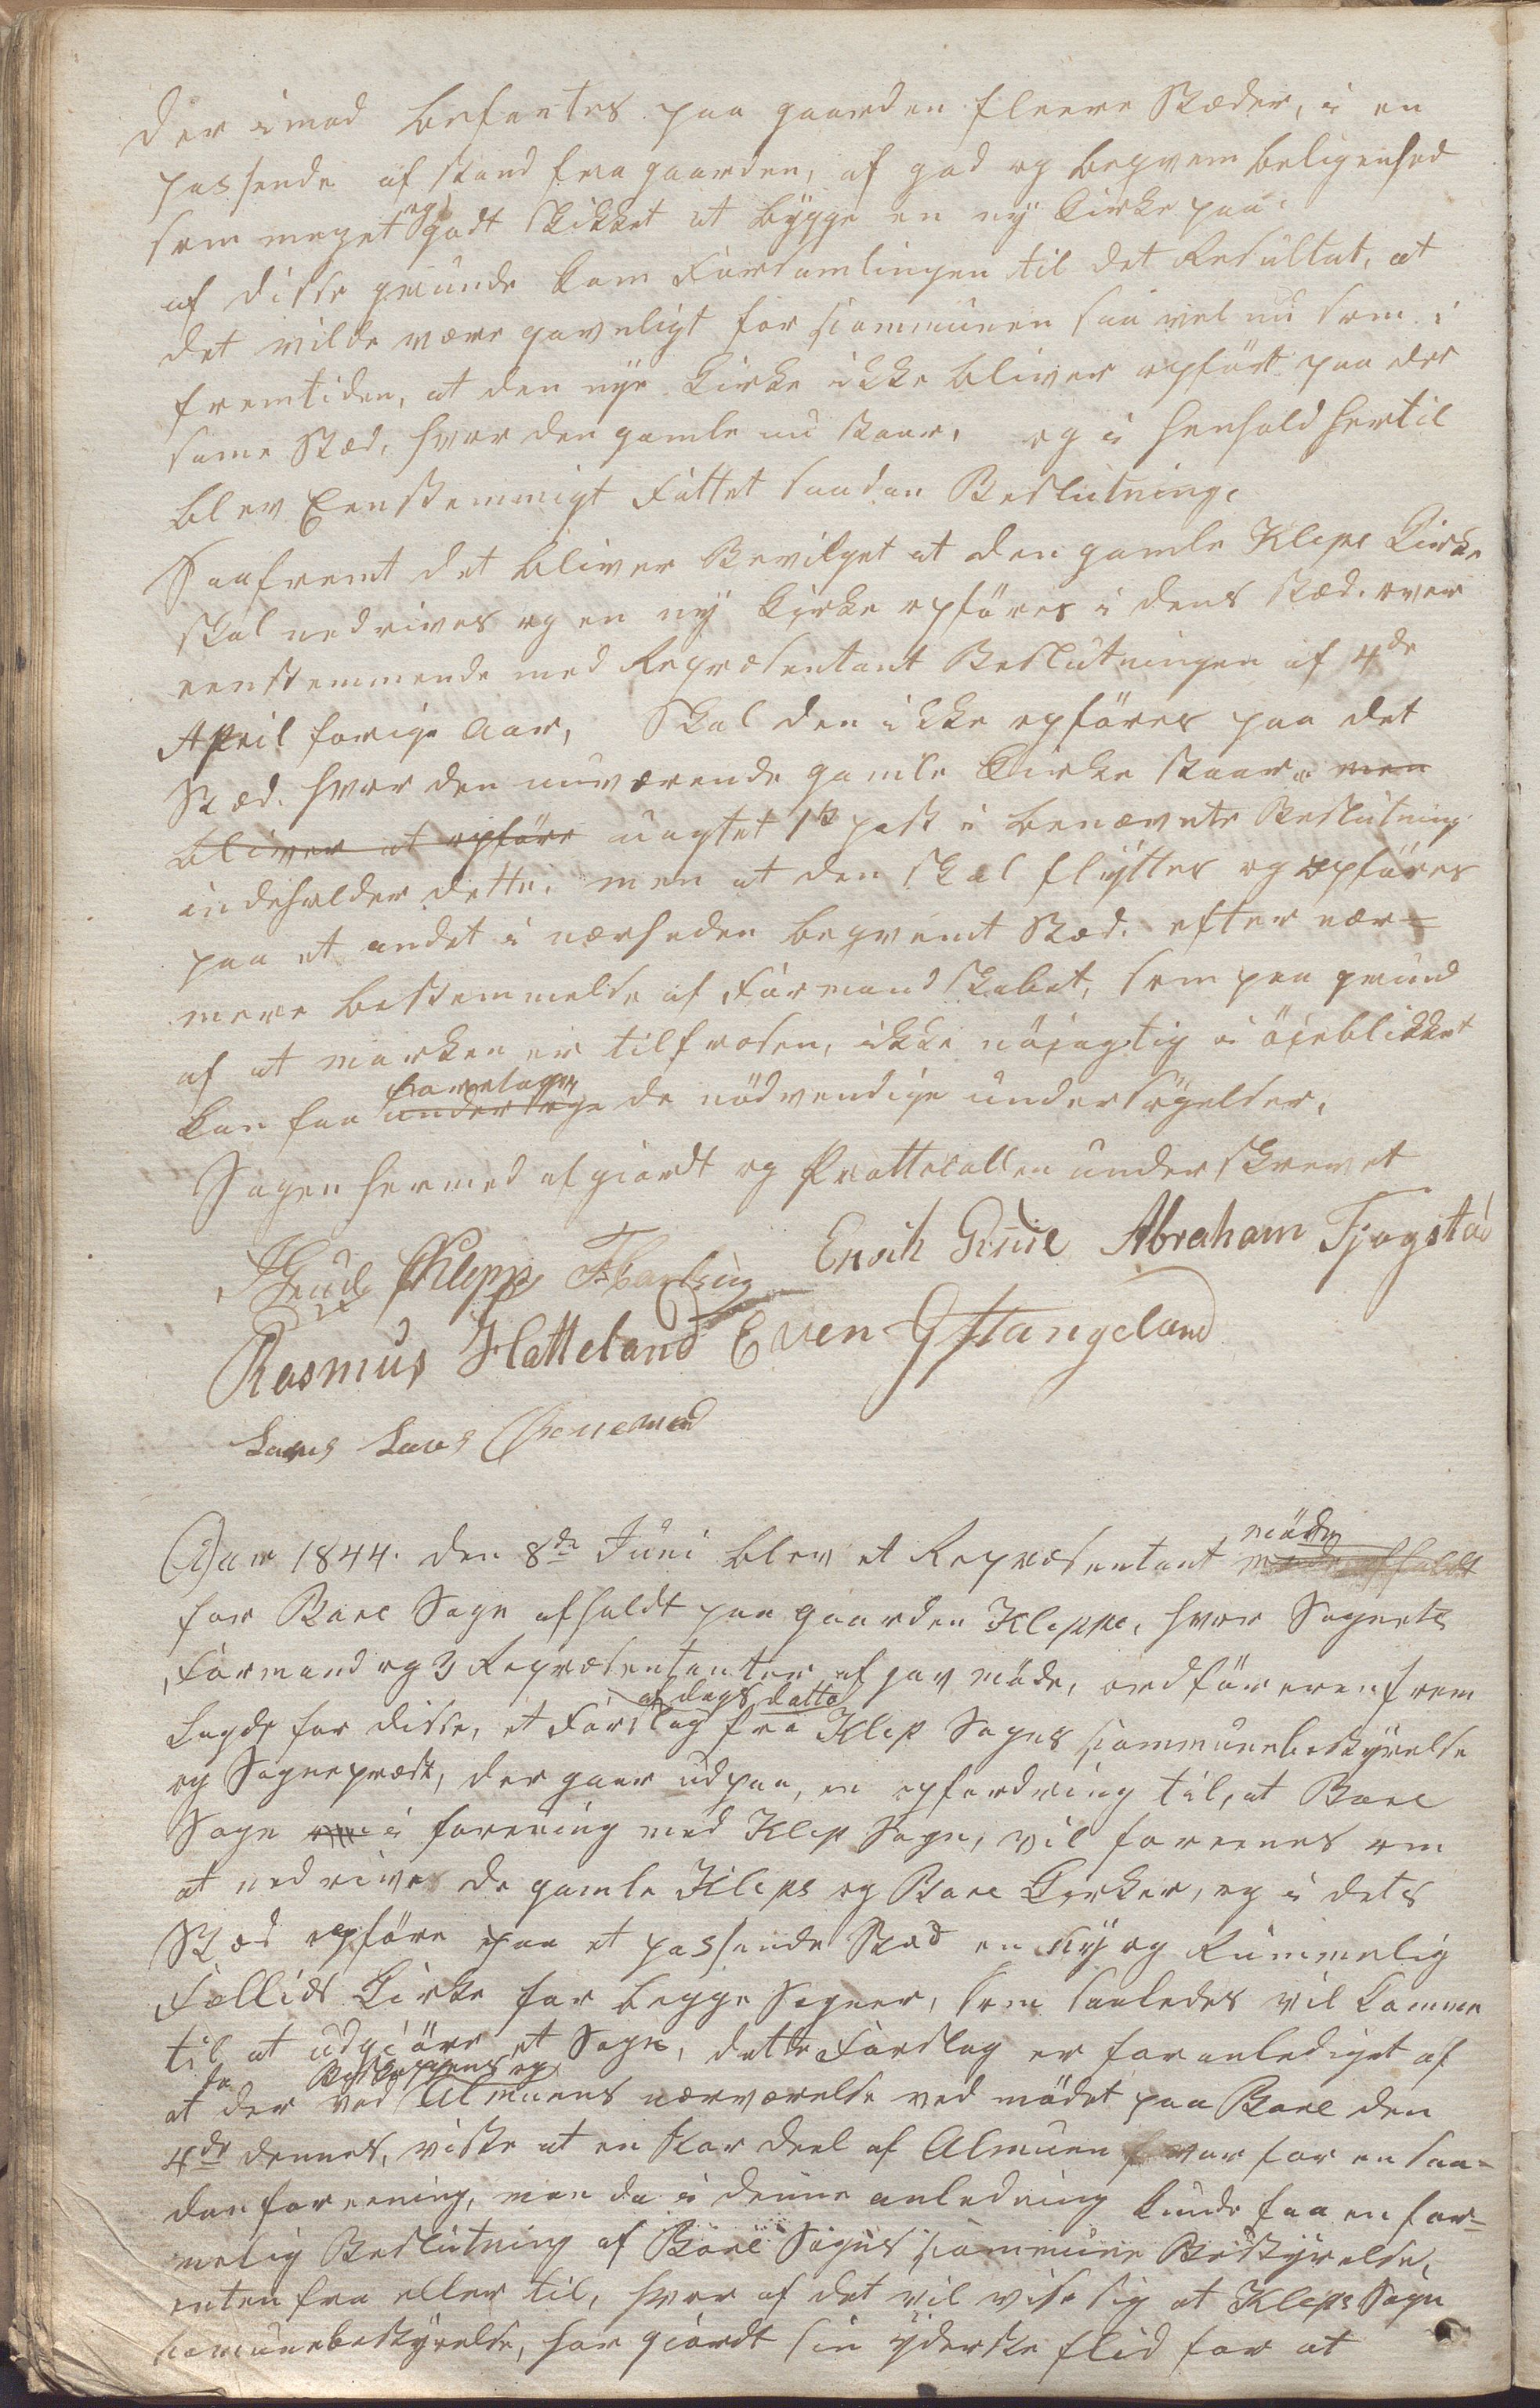 Der imod befantes paa gaarden fleere Stæder, i en
passende af stand fra gaarden, af god og beqvem beligenhed
som meget og godt skikket at bygge en ny Kirke paa.
af disse grunde kom Forsamlingen til det Resultat, at
det vilde være gavnligt for Communen saa vel nu som i
fremtiden, at den nye Kirke ikke bliver opført paa det
samme Stæd, hvor den gamle nu staar, og i Henhold hertil
blev Eenstemmigt Fattet saadan Beslutning.
Saafremt det bliver Bevilget at den gamle Kleps Kirke
skal nedrives og en ny Kirke opføres i dens stæd. over
eenstemmende med Repræsentant Beslutningen af 4de
April forige Aar, Skal den ikke opføres paa det
Stæd. hvor den nuværende gamle Kirke staar. men
bliver at opføre uagtet 1ste post i benævnte Beslutning
indeholder dette. men at den skal flyttes og opføres
paa et andet i nærheden beqvemt Stæd. efter nær-
mere bestemmelse af Formandskabet, som paa grund
af at marken er tilfrosen, ikke nøjagtig i øjeblikket
kan faa foretage de nødvendige undersøgelser.
Sagen hermed afgiordt og Prottocollen underskrevet
Klepp Erich Grude Abraham Tjøgstad
Rasmus Hatteland Even Stangeland
Lars Lars
Aar 1844. den 8de Juni blev et Repræsentant møde
for Bore Sogn afholdt paa gaarden Kleppe, hvor Sognets
Formand og 3 Repræsentanter af gav møde, ordføreren frem
af dags datto
Lagde for disse, et Forslag fra Klep Sogns Communebestyrelse
og Sognepræst, der gaar udpaa, en opfordring til, at Bore
Sogn i forening med Klep Sogn, vil foreenes om
at nedrive de gamle Kleps og Bore Kirker, og i dets
Stæd opføre paa et passende Stæd en Ny og Rummelig
Fællids Kirke for begge Sogner, som saaledes vil komme
til at udgiøre et Sogn, dette Forslag er foranlediget af
da Bispens og
at der ved Almuens nærværelse ved mødet paa Bore den
4de dennes, viste at en stor deel af Almuen var for en saa-
dan foreening, men da i denne anledning kunde faa en for-
melig Beslutning af Bore Sogns Commune Bestyrelse,
enten fra eller til, hvor af det vil vise sig at Kleps Sogn
Communebestyrelse, har giordt sin yderste flid for at